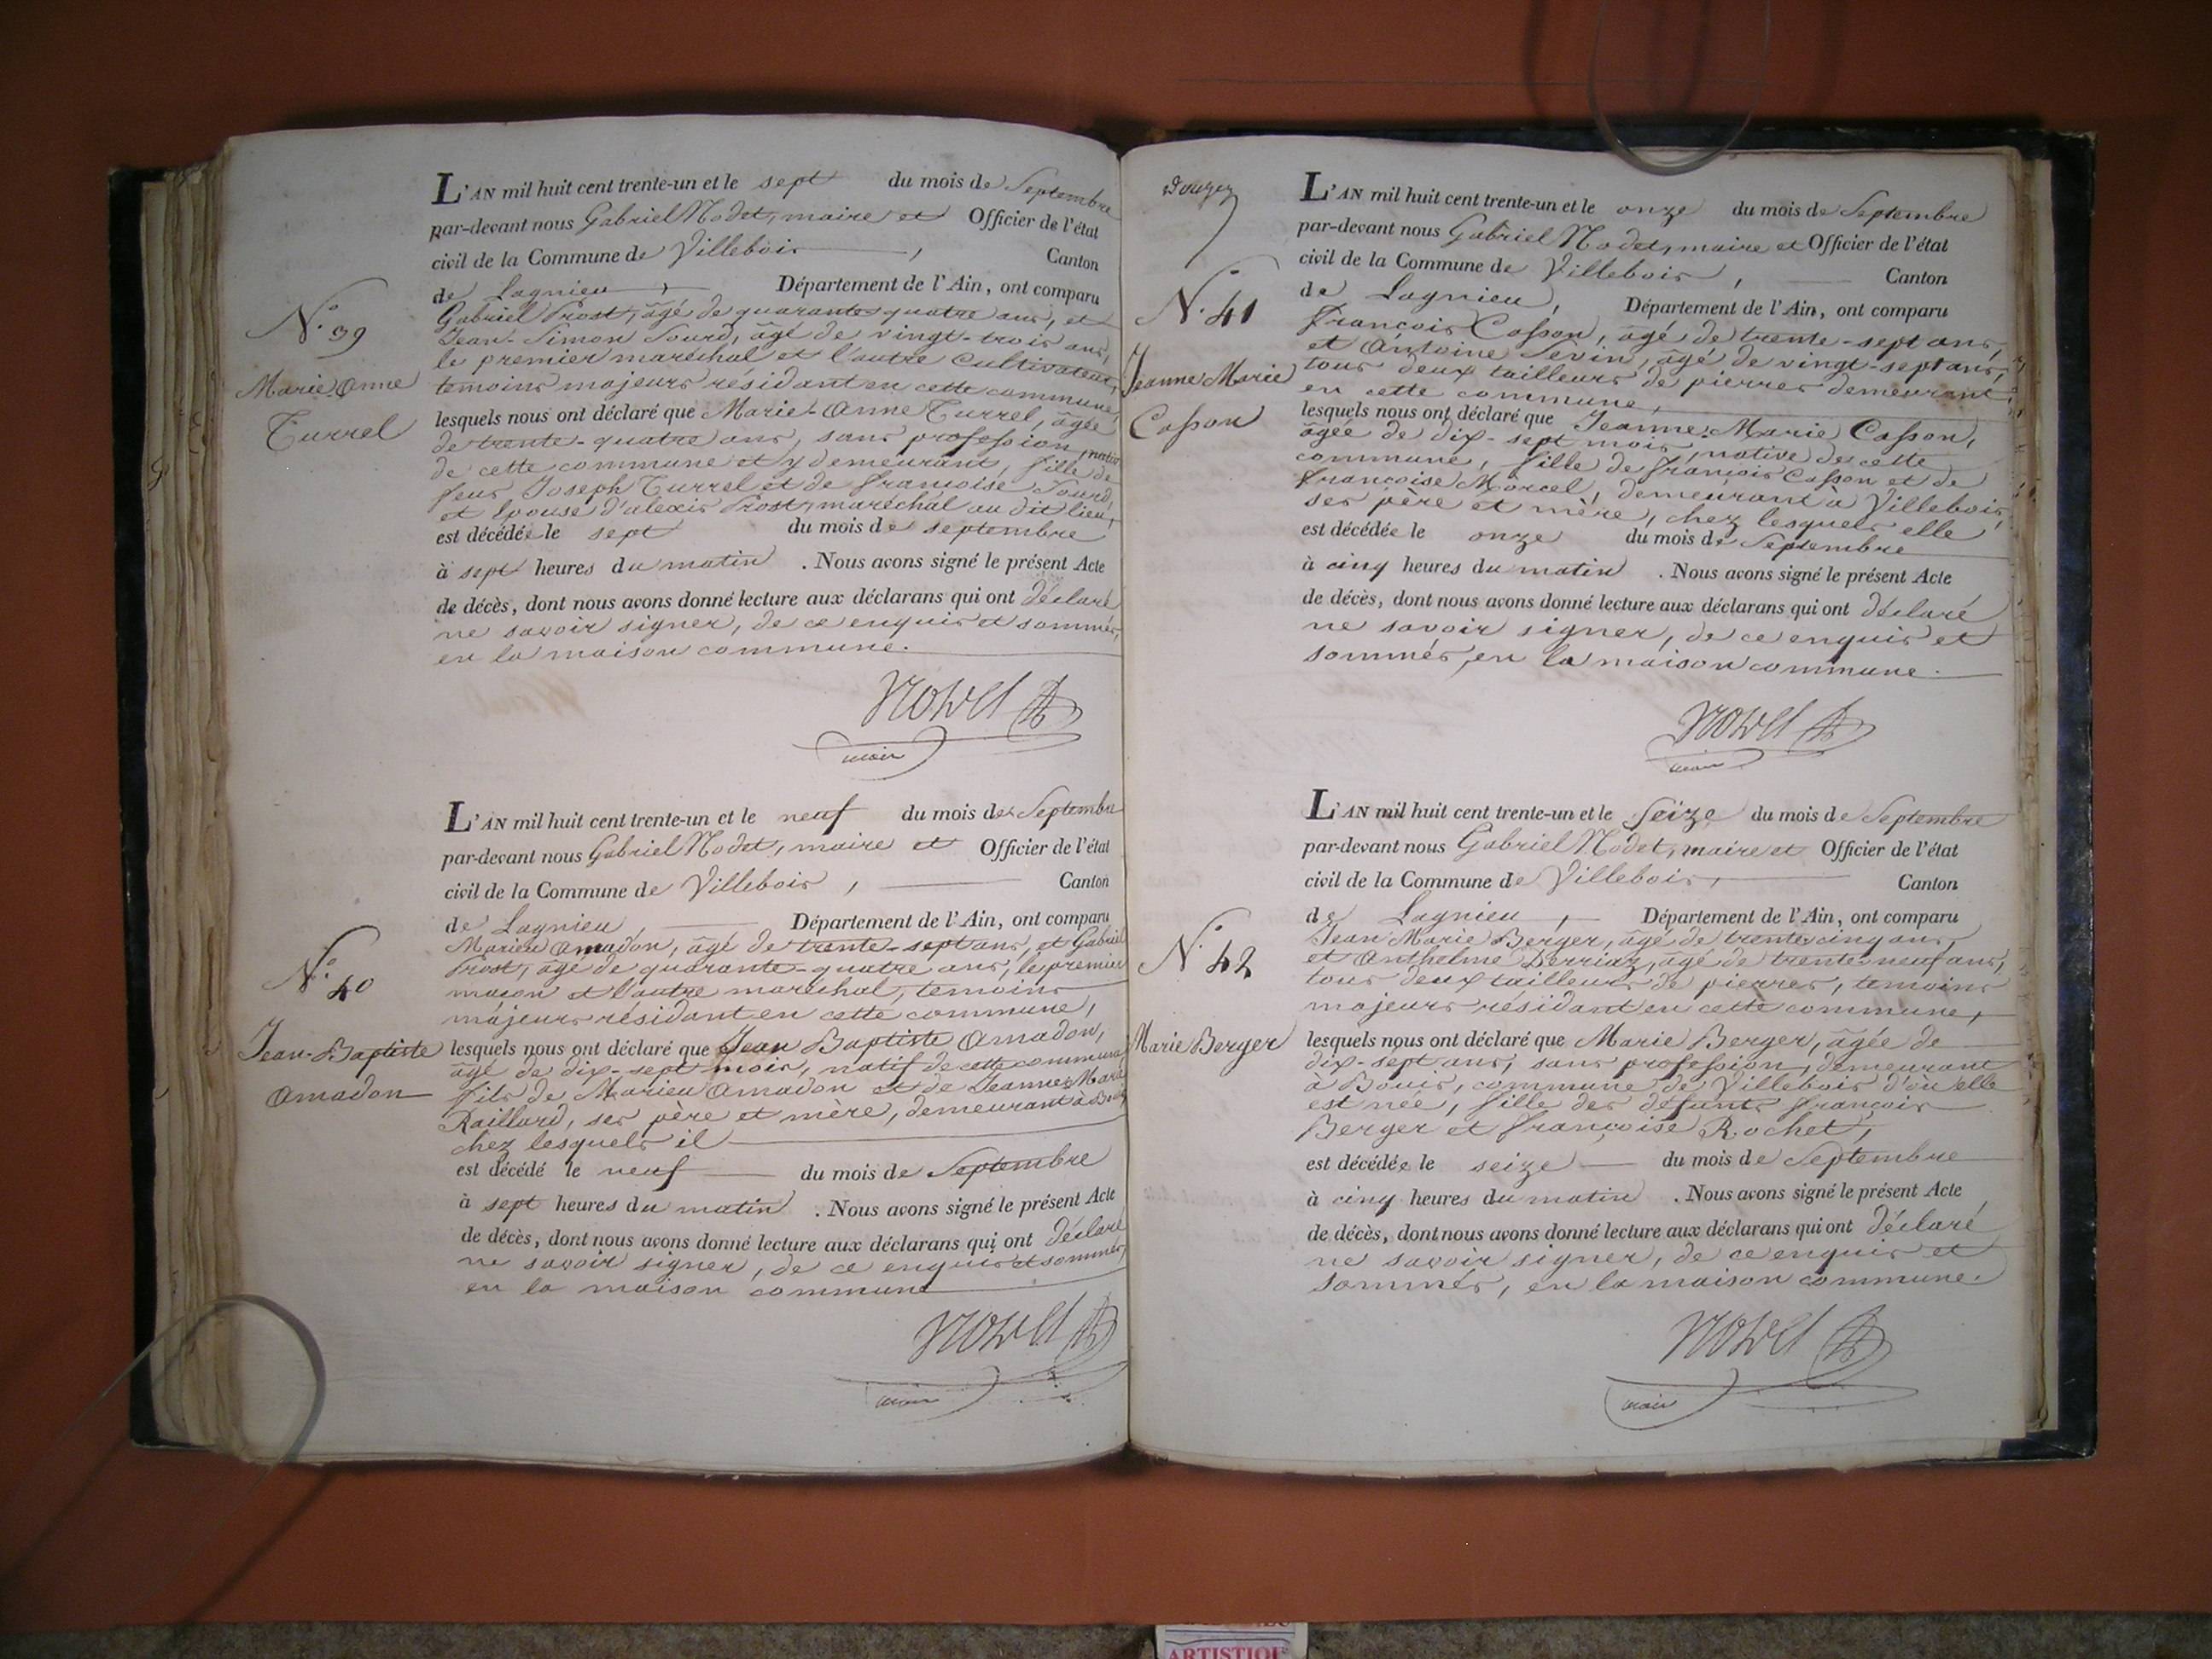 L'AN mil huit cent trente-un et le sept du mois de Septembre
par-devant nous Gabriel Nodet, maire et Officier de l'état
civil de la Commune de Villebois, Canton
de Lagnieu, Département de l'Ain, ont comparu
N.° 39
Marie-Anne
Turrel
Gabriel Prost, âgé de quarante-quatre ans, et
Jean-Simon Sourd, âgé de vingt-trois ans,
le premier maréchal et l'autre cultivateur,
temoins majeurs résidant en cette commune,
lesquels nous ont déclaré que Marie-Anne Turrel, âgée
de trente-quatre ans, sans profession, native
de cette commune et y demeurant, fille de
feus Joseph Turrel et de françoise Sourd,
et épouse d'alexis Prost, maréchal au dit lieu,
est décédée le sept du mois de septembre
à sept heures du matin. Nous avons signé le présent Acte
de décès, dont nous avons donné lecture aux déclarans qui ont déclaré
ne savoir signer, de ce enquis et sommés,
en la maison commune.
Nodet
maire
L'AN mil huit cent trente-un et le neuf du mois de Septembre
par-devant nous Gabriel Nodet, maire et Officier de l'état
civil de la Commune de Villebois, Canton
de Lagnieu, Département de l'Ain, ont comparu
N.° 40
Jean-Baptiste
Amadon
Marieu Amadon, âgé de trente-sept ans, et Gabriel
Prost, âgé de quarante-quatre ans, le premier
maçon et l'autre maréchal, temoins
majeurs résidant en cette commune,
lesquels nous ont déclaré que Jean Baptiste Amadon,
âgé de dix-sept mois, natif de cette commune
fils de Marieu Amadon et de Jeanne Marie
Raillard, ses père et mère, demeurant à Bouis
chez lesquels il
est décédé le neuf du mois de Septembre
à sept heures du matin. Nous avons signé le présent Acte
de décès, dont nous avons donné lecture aux déclarans qui ont déclaré
ne savoir signer, de ce enquis et sommés,
en la maison commune
Nodet
maire
Douzez
L'AN mil huit cent trente-un et le onze du mois de Septembre
par-devant nous Gabriel Nodet, maire et Officier de l'état
civil de la Commune de Villebois, Canton
de Lagnieu, Département de l'Ain, ont comparu
N.° 41
Jeanne Marie
Casson
françois Casson, âgé de trente-sept ans,
et Antoine Sevin, âgé de vingt-sept ans,
tous deux tailleurs de pierres demeurant
en cette commune,
lesquels nous ont déclaré que Jeanne-Marie Casson,
âgée de dix-sept mois, native de cette
commune, fille de françois Casson et de
françoise Morcel, demeurant à Villebois,
ses père et mère, chez lesquels elle
est décédée le onze du mois de Septembre
à cinq heures du matin. Nous avons signé le présent Acte
de décès, dont nous avons donné lecture aux déclarans qui ont déclaré
ne savoir signer, de ce enquis et
sommés, en la maison commune.
Nodet
maire
L'AN mil huit cent trente-un et le seize du mois de Septembre
par-devant nous Gabriel Nodet, maire et Officier de l'état
civil de la Commune de Villebois, Canton
de Lagnieu, Département de l'Ain, ont comparu
N.° 42
Marie Berger
Jean Marie Berger, âgé de trente cinq ans,
et Anthelme Derriaz, âgé de trente neuf ans,
tous deux tailleurs de pierres, temoins
majeurs résidant en cette commune,
lesquels nous ont déclaré que Marie Berger, âgée de
dix-sept ans, sans profession, demeurant
à Bouis, commune de Villebois d'où elle
est née, fille des défunts françois
Berger et françoise Rochet,
est décédée le seize du mois de Septembre
à cinq heures du matin. Nous avons signé le présent Acte
de décès, dont nous avons donné lecture aux déclarans qui ont déclaré
ne savoir signer, de ce enquis et
sommés, en la maison commune.
Nodet
maire
ARTISTIQUE